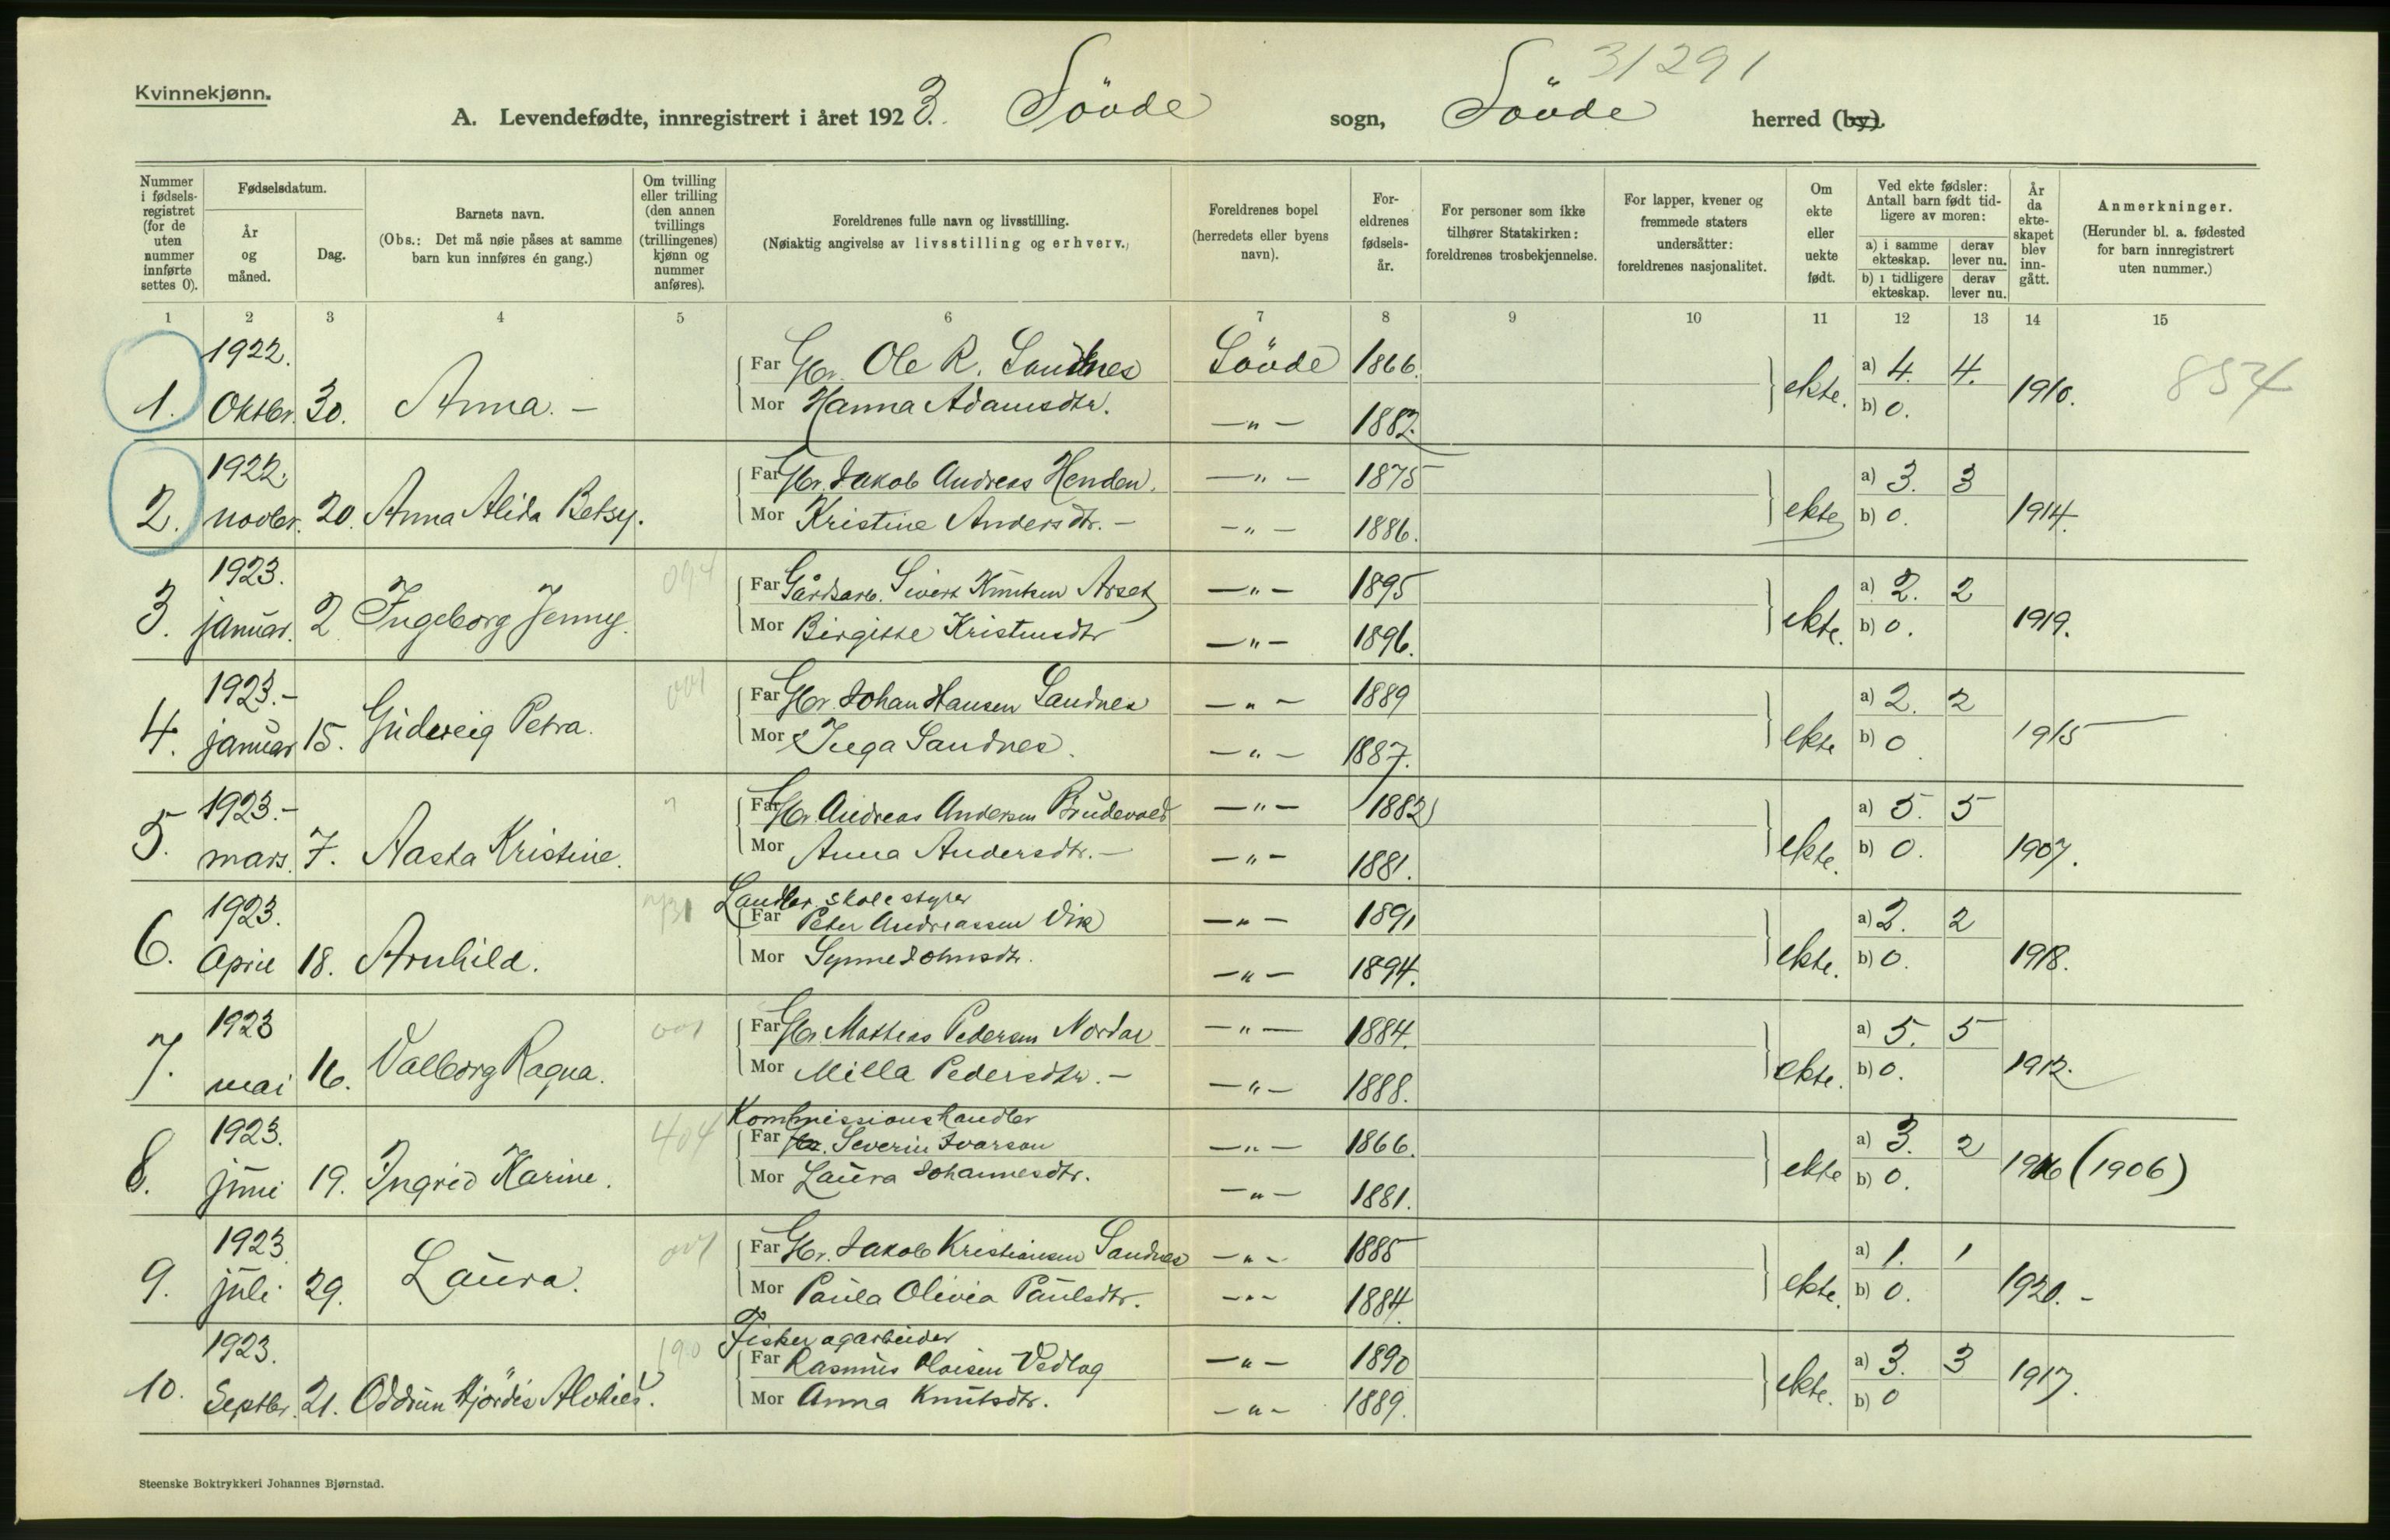 31291
Kvinnekjønn.
A. Levendefødte, innregistrert i året 1923. Sövde sogn, Sövde herred (by).
Nummer i fødsels-registret (for de uten nummer innførte settes 0).
Fødselsdatum.
År og måned.
Dag.
Barnets navn.
(Obs.: Det må nøie påses at samme barn kun innføres én gang.)
Om tvilling eller trilling (den annen tvillings (trillingenes) kjønn og nummer anføres).
Foreldrenes fulle navn og livsstilling.
(Nøiaktig angivelse av livsstilling og erhverv.)
Foreldrenes bopel (herredets eller byens navn).
For-eldrenes fødsels-år.
For personer som ikke tilhører Statskirken: foreldrenes trosbekjennelse.
For lapper, kvener og fremmede staters undersåtter: foreldrenes nasjonalitet.
Om ekte eller uekte født.
Ved ekte fødsler: Antall barn født tid-ligere av moren:
a) i samme ekteskap. derav lever nu.
b) i tidligere ekteskap. derav lever nu.
År da ekte-skapet blev inn-gått.
Anmerkninger.
(Herunder bl. a. fødested for barn innregistrert uten nummer.)
1 2 3 4 5 6 7 8 9 10 11 12 13 14 15
1922. Far Gbr. Ole R. Sandnes Sövde 1866. a) 4. 4. 854
1. Oktbr. 30. Anna. – Mor Hanna Adamsdtr. —„— 1882. ekte. b) 0. 1910.
1922. Far Gbr. Jakob Andreas Henden. —„— 1875 a) 3. 3
2. novbr. 20. Anna Alida Betsy. Mor Kristine Andersdtr. – —„— 1886. ekte b) 0. 1914.
1923. 094 Far Gårdarb. Sivert Knutsen Årset —„— 1895 a) 2. 2
3. januar. 2 Ingeborg Jenny. Mor Birgitte Kristensdtr —„— 1896. ekte. b) 0. 1919.
1923.– 001 Far Gbr. Johan Hansen Sandnes —„— 1889 a) 2. 2
4. januar 15. Gudveig Petra. Mor Inga Sandnes. —„— 1887. ekte b) 0 1915
1923.– Far Gbr. Andreas Andersen Brudevold —„— 1882 a) 5. 5
5. mars. 7. Aasta Kristine. Mor Anna Andersdtr. – —„— 1881. ekte. b) 0. 1907.
Landbr. skolestyrer
1923. Far Peter Andreassen Vik —„— 1891 a) 2. 2
6. April 18. Arnhild. Mor Synne Johnsdtr. —„— 1894. ekte. b) 0. 1918.
1923 001 Far Gbr. Mathias Pedersen Nordal —„— 1884. a) 5. 5
7. mai 16. Valborg Ragna. Mor Milla Pedersdtr. – —„— 1888. ekte. b) 0. 1912.
Kommissionshandler
1923. 404 Far Gbr. Severin Ivarson —„— 1866. a) 3. 2
8. juni 19. Ingrid Karine. Mor Laura Johannesdtr. —„— 1881. ekte b) 0. 1906 (1906)
1923 001 Far Gbr. Jakob Kristiansen Sandnes —„— 1885 a) 1. 1
9. juli 29. Laura. Mor Paula Olivia Paulsdtr. —„— 1884. ekte. b) 0. 1920. –
Fisker og arbeider
1923. 190 Far Rasmus Olaisen Vedlog —„— 1890 a) 3. 3
10. Septbr. 21. Oddrun Hjördis Mor Anna Knutsdtr. —„— 1889. ekte. b) 0 1917.
Steenske Boktrykkeri Johannes Bjørnstad.